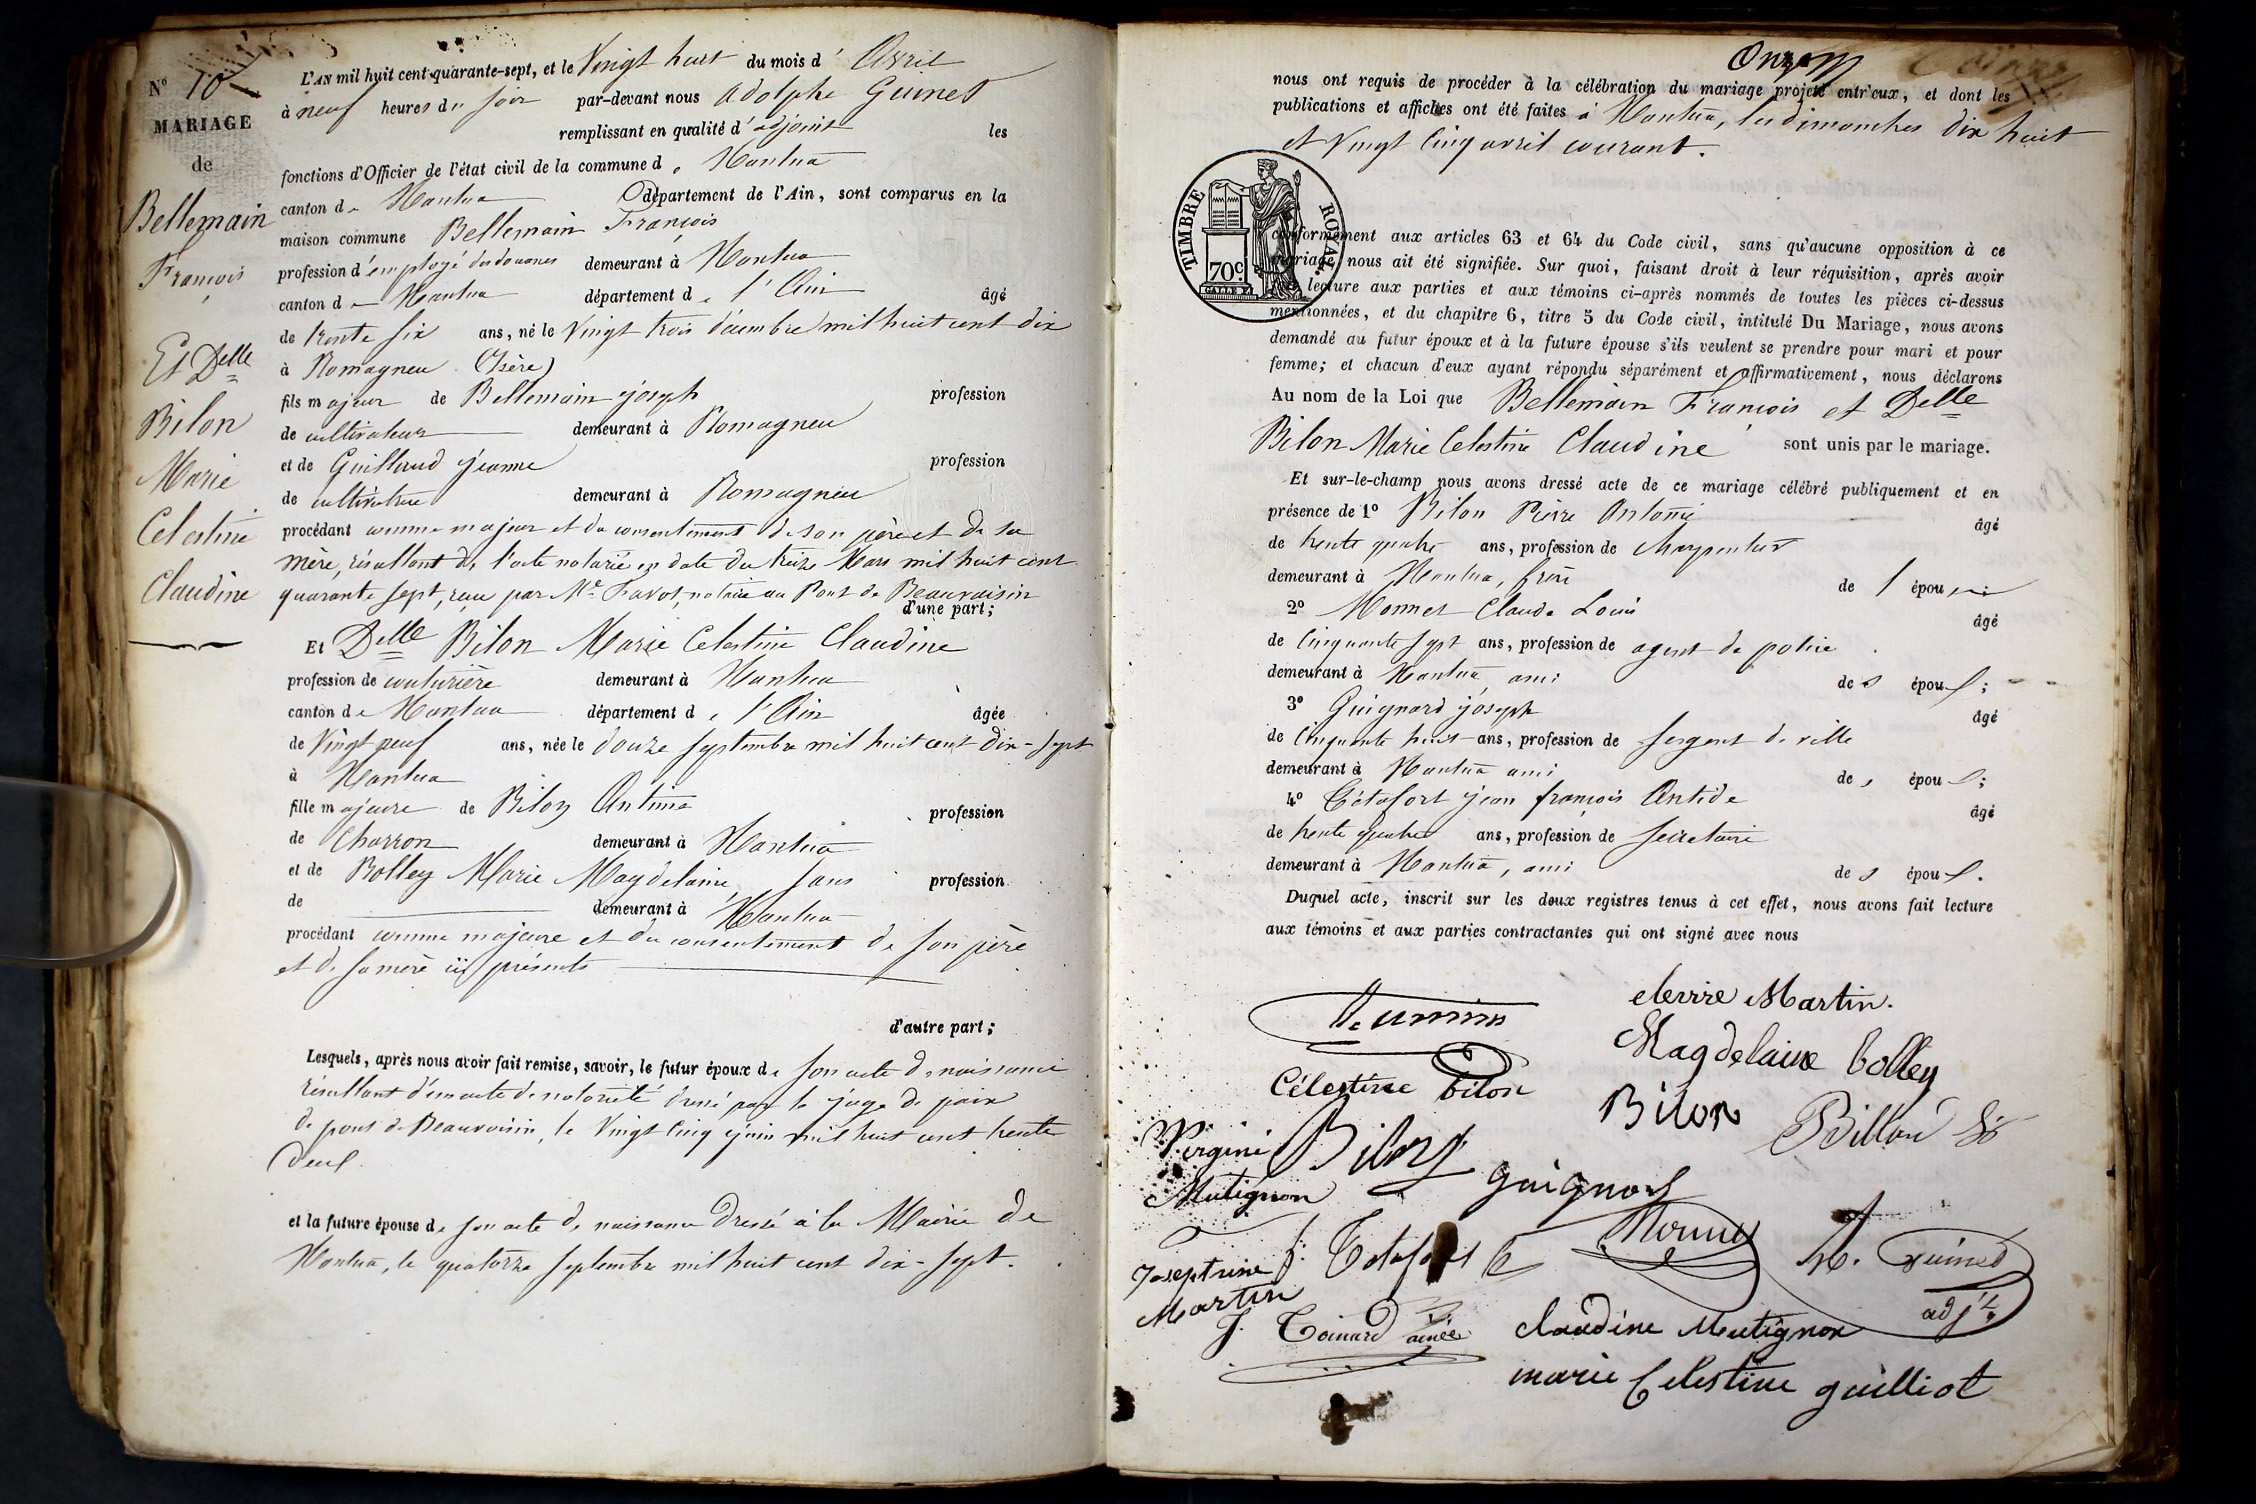 N° 10
MARIAGE
de
Bellemain
François
Et Delle
Bilon
Marie
Celestine
Claudine
L'AN mil huit cent quarante-sept, et le Vingt huit du mois d' Avril
à neuf heures du soir par-devant nous Adolphe Guinet
remplissant en qualité d'adjoint les
fonctions d'Officier de l'état civil de la commune de Nantua
canton de Nantua département de l'Ain, sont comparus en la
maison commune Bellemain François
profession d'employé des douanes demeurant à Nantua
canton de Nantua département de l'Ain âgé
de trente six ans, né le Vingt trois décembre mil huit cent dix
à Romagneu (Isère)
fils majeur de Bellemain joseph profession
de cultivateur demeurant à Romagneu
et de Guillaud jeanne profession
de cultivatrice demeurant à Romagneu
procédant comme majeur et du consentement de son père et de sa
mère, résultant de l'acte notarié en date du treize Mars mil huit cent
quarante sept, reçu par Me Favot, notaire au Pont de Beauvoisin
d'une part;
Et Delle Bilon Marie Celestine Claudine
profession de couturière demeurant à Nantua
canton de Nantua département de l'Ain âgée
de Vingt neuf ans, née le douze septembre mil huit cent dix-sept
à Nantua
fille majeure de Bilon Antime profession
de Charron demeurant à Nantua
et de Bolley Marie Magdelaine, sans profession
de demeurant à Nantua
procédant comme majeure et du consentement de son père
et de sa mère ici présents
d'autre part;
Lesquels, après nous avoir fait remise, savoir, le futur époux de son acte de naissance
résultant d'un acte de notoriété dressé par le juge de paix
de pont de Beauvoisin, le Vingt cinq juin mil huit cent trente
deux.
et la future épouse de son acte de naissance dressé à la Mairie de
Nantua, le quatorze septembre mil huit cent dix-sept.
Onze
nous ont requis de procéder à la célébration du mariage projeté entr'eux, et dont les
publications et affiches ont été faites à Nantua, les dimanches dix huit
et Vingt cinq avril courant.
TIMBRE ROYAL.
70c.
conformément aux articles 63 et 64 du Code civil, sans qu'aucune opposition à ce
mariage nous ait été signifiée. Sur quoi, faisant droit à leur réquisition, après avoir
lecture aux parties et aux témoins ci-après nommés de toutes les pièces ci-dessus
mentionnées, et du chapitre 6, titre 5 du Code civil, intitulé Du Mariage, nous avons
demandé au futur époux et à la future épouse s'ils veulent se prendre pour mari et pour
femme; et chacun d'eux ayant répondu séparément et affirmativement, nous déclarons
Au nom de la Loi que Bellemain François et Delle
Bilon Marie Celestine Claudine sont unis par le mariage.
Et sur-le-champ nous avons dressé acte de ce mariage célébré publiquement et en
présence de 1° Bilon Pierre Antoine âgé
de trente quatre ans, profession de charpentier
demeurant à Nantua, frère de l'épouse
2° Monnet Claude Louis âgé
de cinquante sept ans, profession de agent de police
demeurant à Nantua, ami des époux;
3° Guignard joseph âgé
de cinquante huit ans, profession de sergent de ville
demeurant à Nantua ami des époux;
4° Tétafort jean françois Antide âgé
de trente quatre ans, profession de secretaire
demeurant à Nantua, ami des époux.
Duquel acte, inscrit sur les deux registres tenus à cet effet, nous avons fait lecture
aux témoins et aux parties contractantes qui ont signé avec nous
Martin.
Magdelaine bolley
Célestine bilon
Bilon Billon
Virginie Bilon
Mutignon
Guignard
Josephine
Martin
Tetafort
Monnet
A. Guinet
adjt.
J. Toinard ainée
claudine Mutignon
marie Celestine guilliot